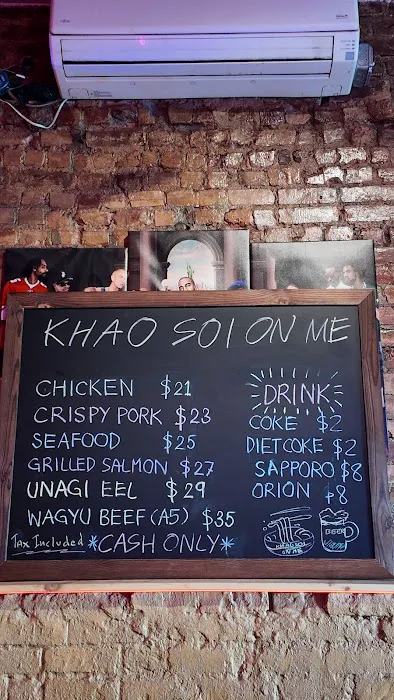 KHAO SOI ON ME
CHICKEN $21
CRISPY PORK $23
SEAFOOD $25
GRILLED SALMON $27
UNAGI EEL $29
WAGYU BEEF (A5) $35
Tax Included *CASH ONLY*
DRINK
COKE $2
DIET COKE $2
SAPPORO $8
ORION $8
KHAO SOI
ON ME
BEER